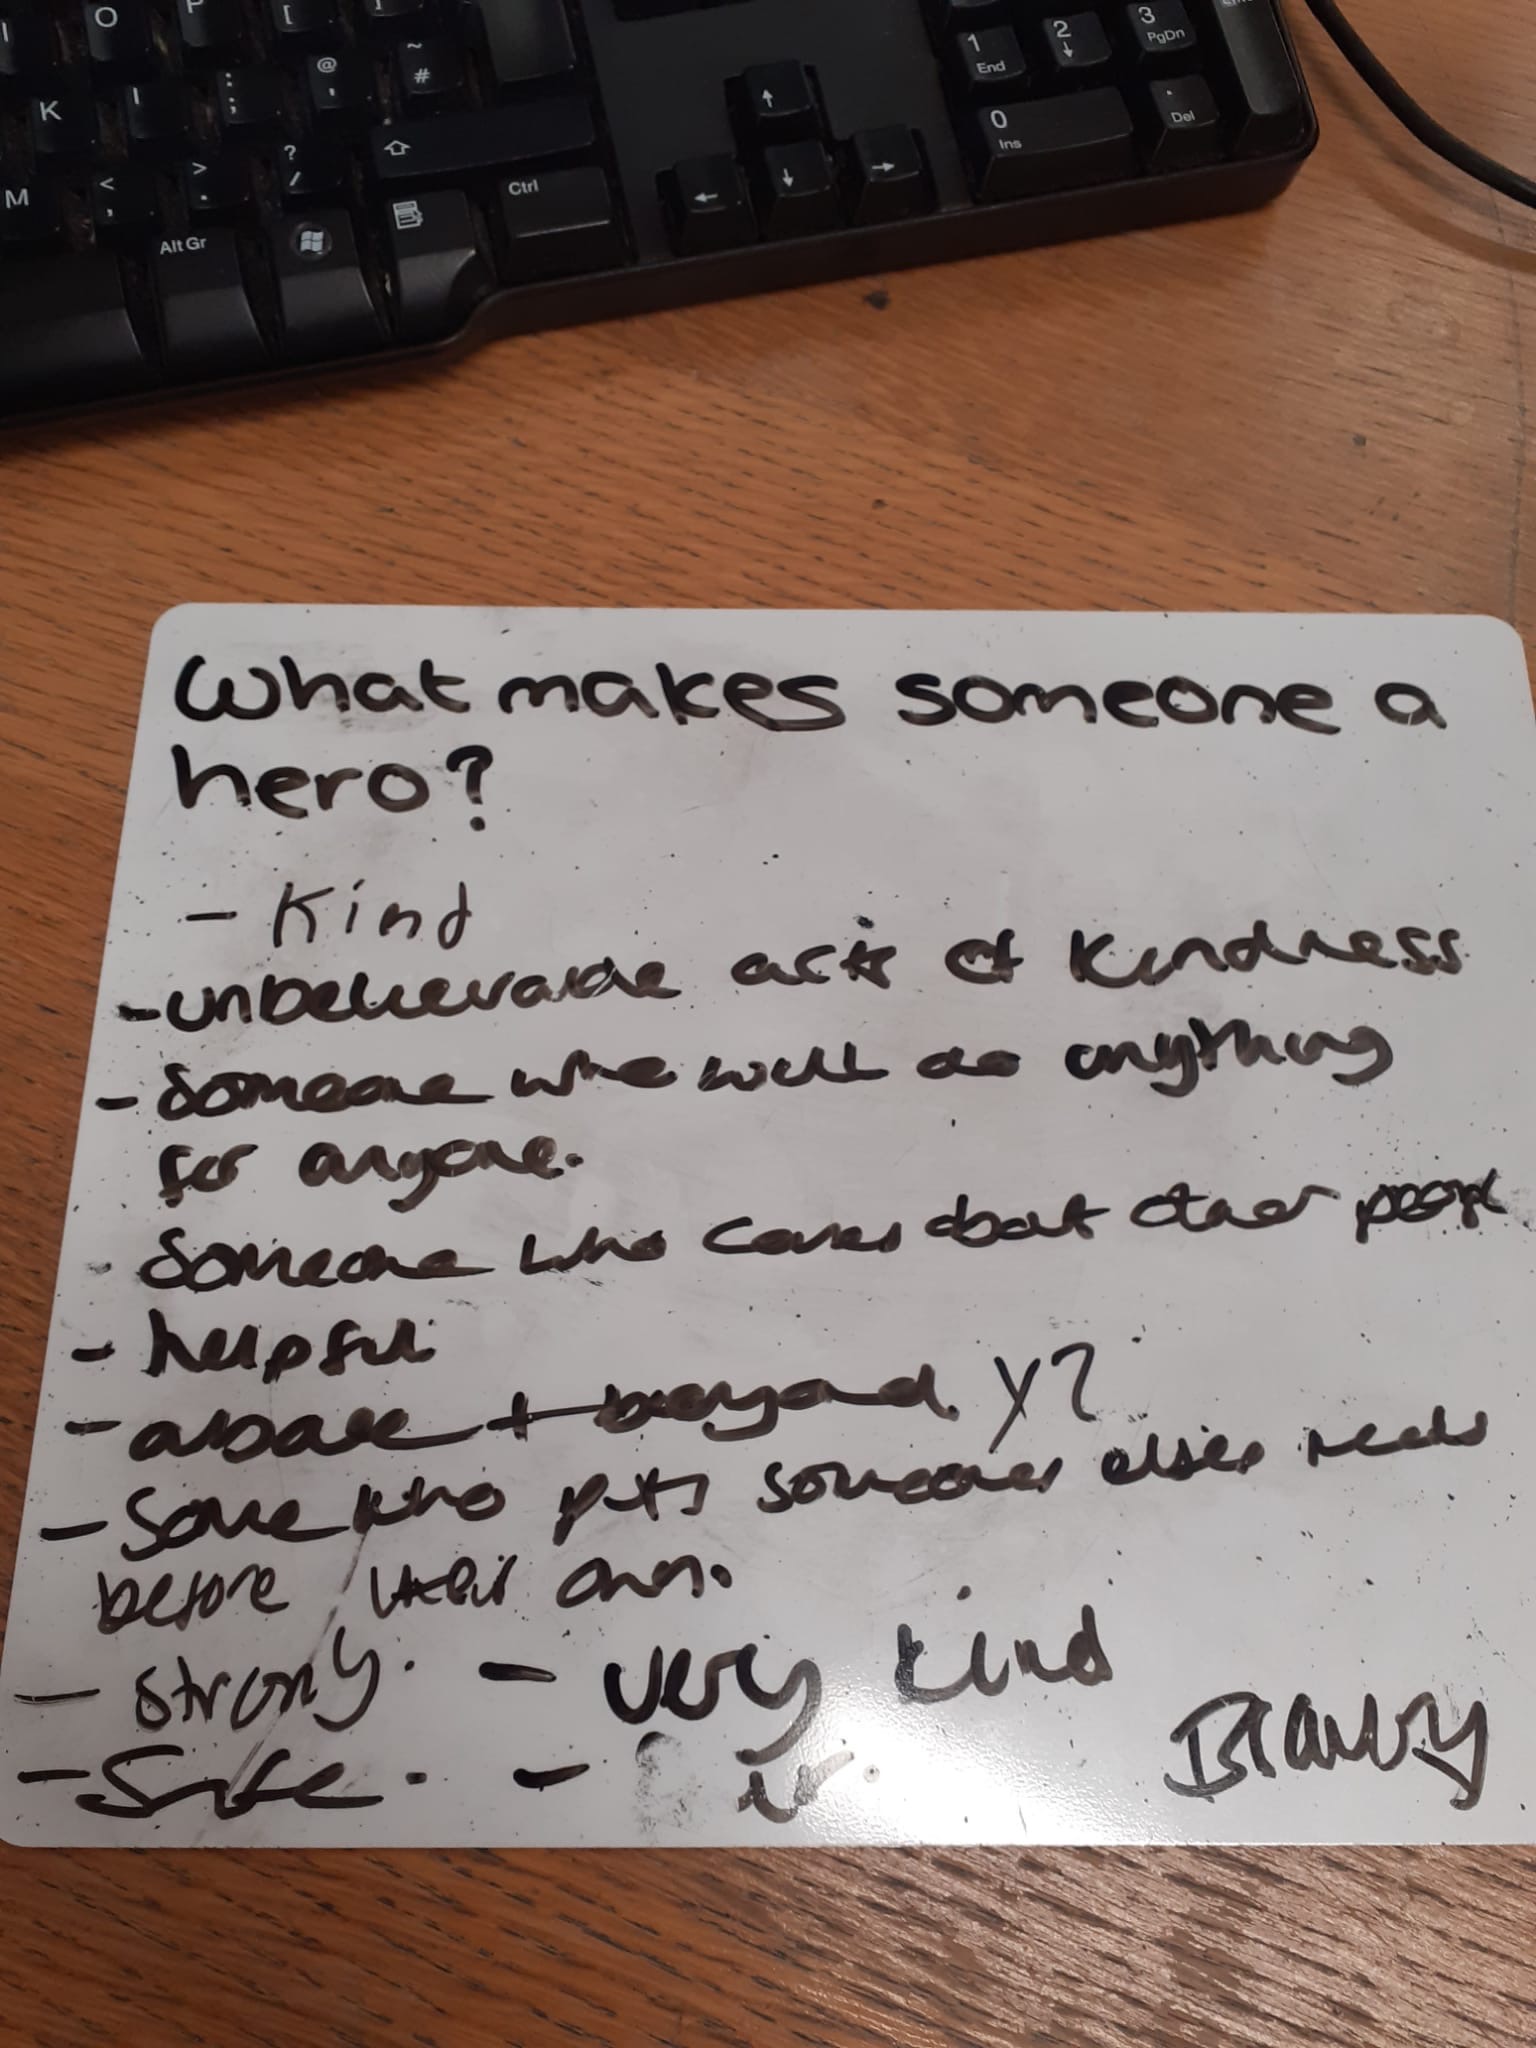 O P [ ]
K l : ; @ ' ~ #
M < , > . ? /
Alt Gr Ctrl
1 End 2 3 PgDn
0 Ins . Del
What makes someone a
hero?
- Kind
- unbelievable acts of kindness
- Someone who will do anything
for anyone.
- Someone who cares about other people
- helpful
- above + beyond. Y?
- Some who puts someones elses needs
before their own.
- strong. - very kind
- Safe. -